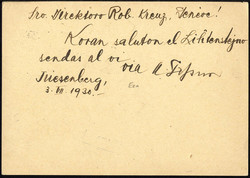 Sro. Direktoro Rob. Kreuz, Genève!
Koran saluton el Liĥtenŝtejno
sendas al vi
via
Triesenberg,
3. VII. 1930.